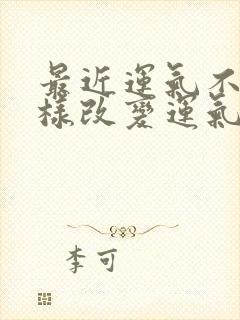 最近運氣不
樣改變運氣
李可